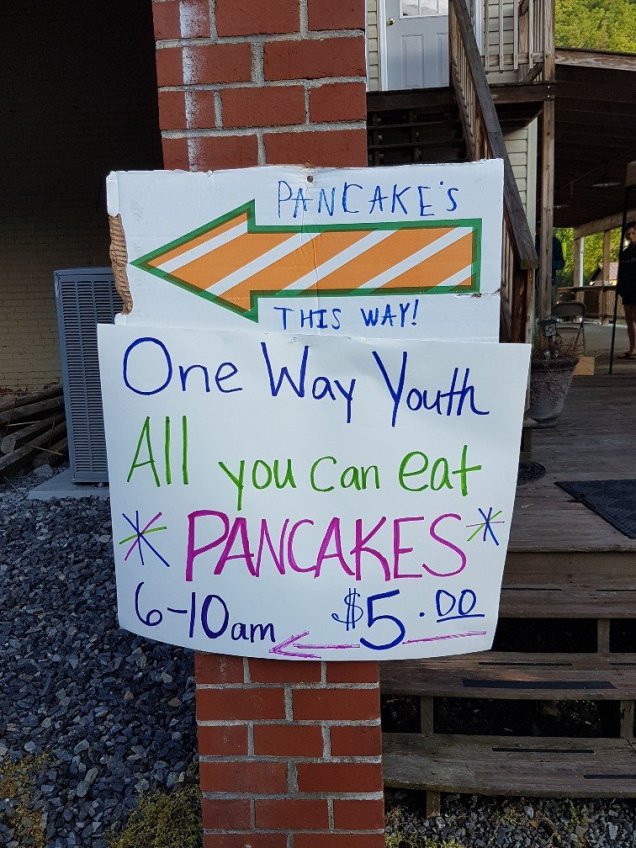 PANCAKE'S
THIS WAY!
One Way Youth
All you can eat
*PANCAKES*
6-10am $5.00